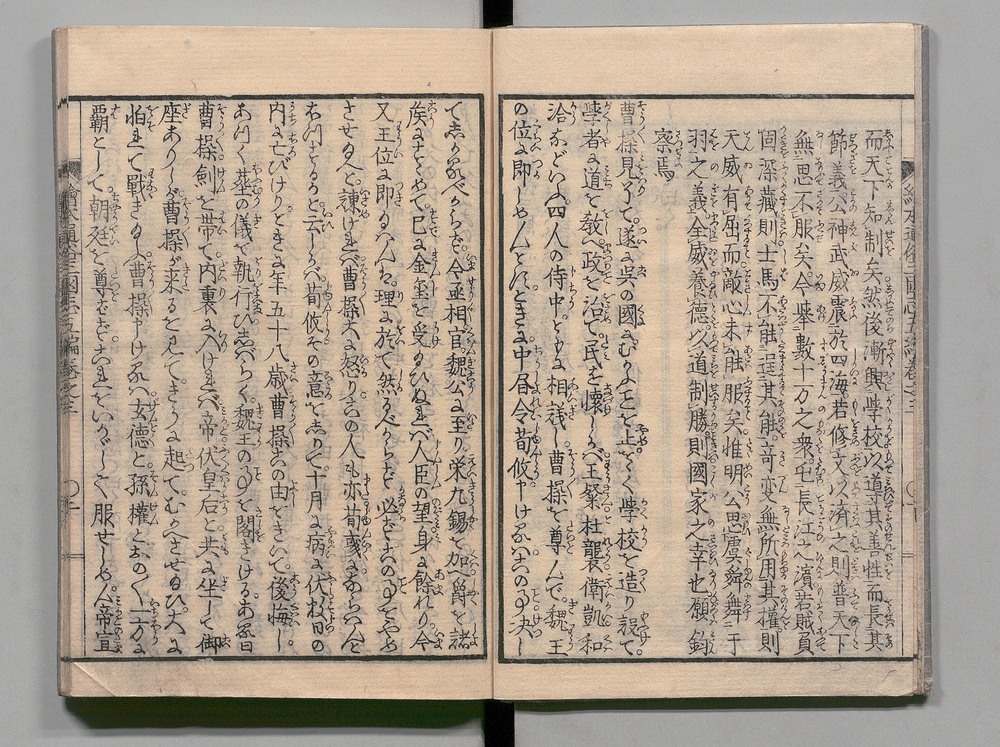 而天下知制矣然後漸興学校以導其善性而長其
節義公神武威震於四海若修文以済之則普天下
無思不服矣今挙数十万之衆屯長江之濱若賊負
固深蔵則士馬不能逞其能奇変無所用其権則
天威有屈而敵心未能服矣惟明公思虞舜舞于
羽之義全威養徳以道制勝則國家之幸也願録
察焉
曹操見了て。遂に呉の國にむかふことを止て。学校を造り設て。
学者に道を教へ。政を治て民を懐しかバ。王粲杜襲衛凱和
洽などいふ四人の侍中。ともに相議し。曹操を尊んで。魏王
の位に即しめんとす。ときに中書令荀攸申けるハ。この事決し
てしかるべからず。今丞相官魏公に至り。栄九錫を加へ。爵を諸
侯にすゝめて。已に金璽を受玉ひぬれバ。人臣の望身に餘れり。今
又王位に即玉ハんハ。理に於て然るべからず。必ずこの事とゞめ
させ玉へと諫けれバ。曹操大に怒り。この人も亦荀彧にならハんと
するかと云しかバ。荀攸その意をしりて。十月に病に伏。十日の
内に亡びけり。ときに年五十八歳。曹操この由をきいて後悔し。
あつく葬の儀を執行ひ。しバらく魏王の事を閣きける。ある日
曹操剣を帯て。内裏に入けれバ。帝伏皇后と共に坐して御
座ありしが。曹操が来るを見て。きうに起てむかへさせ玉ひ。大に
怕れて戦き玉ふ。曹操申けるハ。玄徳と孫權とおの〱一方に
覇として。朝廷を尊ばず。これをいかゞして服せしめん。帝宣
繪本通俗三國志五編巻之三
繪本通俗三國志五編巻之三